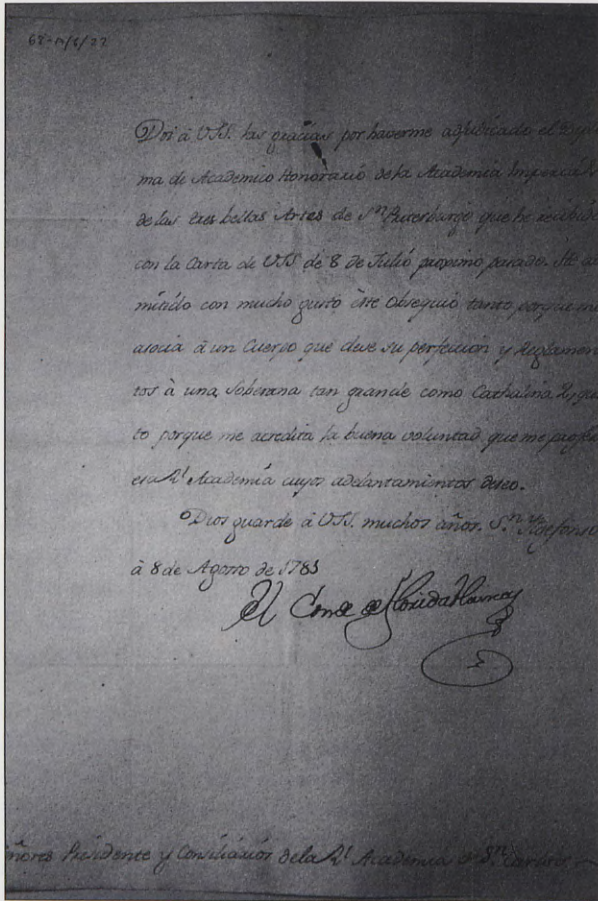 62-A/6/22
Doi à VSS. las gracias por haverme adjudicado el Diplo
ma de Academico Honorario de la Academia Imperial
de las tres bellas Artes de Sn. Petersburgo que he recibido
con la Carta de VSS de 8 de Julio proximo pasado. He ad
mitido con mucho gusto este Obsequio tanto porque me
asocia à un Cuerpo que deve su perfeccion y Reglamen
tos à una Soberana tan grande como Cathalina 2,, quan
to porque me acredita la buena voluntad que me profesa
esa Rl. Academia cuyos adelantamientos deseo.
Dios guarde à VSS. muchos años. Sn. Yldefonso
à 8 de Agosto de 1785
El Conde de Floridablanca
eñores Presidente y Consiliarios de la Rl. Academia de Sn.